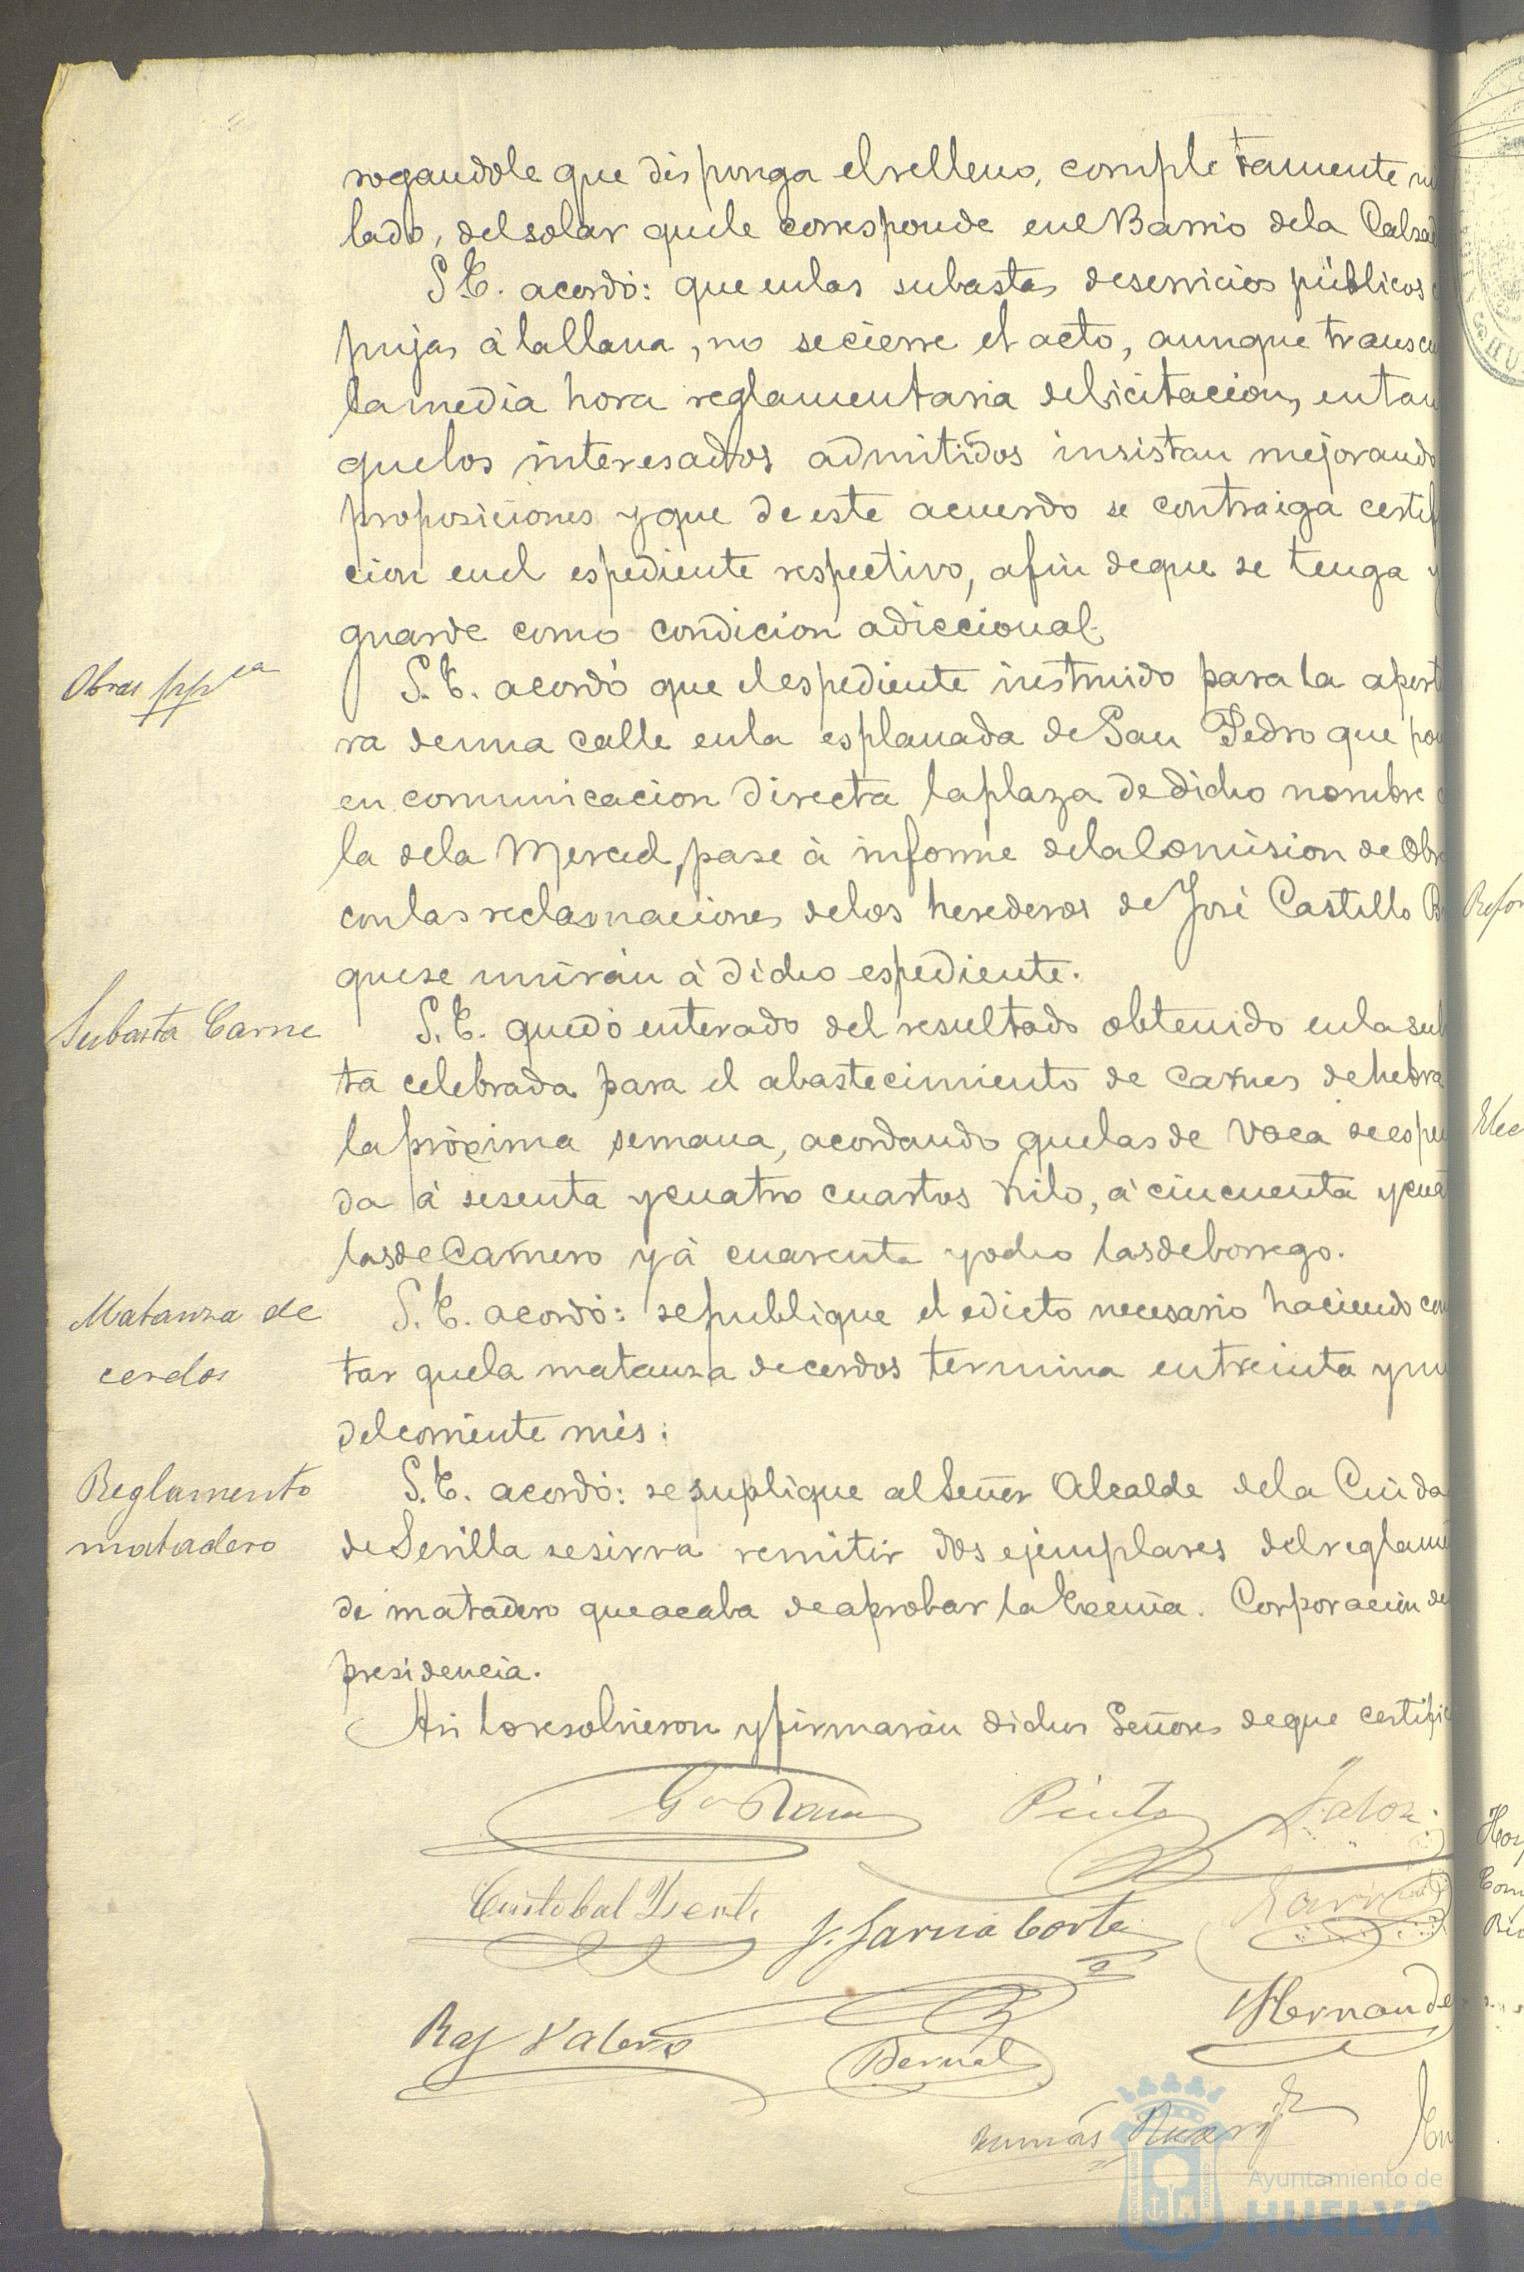 rogandole que disponga el relleno, completamente
lado, del solar que le corresponde en el Barrio de la Calzad
S.E. acordó: que en las subastas de servicios públicos
pujas á la llana, no se cierre el acto, aunque transcu
la media hora reglamentaria de licitacion, en tan
que los interesados admitidos insistan mejorando
proposiciones y que de este acuerdo se contraiga certif
cion en el espediente respectivo, a fin de que se tenga y
guarde como condicion adiccional.
Obras pp.cas
S.E. acordó que el espediente instruido para la apert
ra de una calle en la esplanada de San Pedro que pon
en comunicacion directa la plaza de dicho nombre c
la de la Merced, pase á informe de la Comision de Obr
con las reclamaciones de los herederos de José Castillo
que se unirán á dicho espediente.
Subasta Carne
S.E. quedó enterado del resultado obtenido en la sub
ta celebrada para el abastecimiento de carnes de hebra
la próxima semana, acordando que las de vaca se espen
da á sesenta y cuatro cuartos kilo, á cincuenta y cua
las de Carnero y á cuarenta y ocho las de borrego.
Matanza de
cerdos
S.E. acordó: se publique el edicto necesario haciendo con
tar que la matanza de cerdos termina en treinta y un
del corriente mes:
Reglamento
matadero
S.E. acordó: se suplique al Señor Alcalde de la Ciuda
de Sevilla se sirva remitir dos ejemplares del reglame
de matadero que acaba de aprobar la Excma. Corporacion de
presidencia.
Asi lo resolvieron y firmarán dichos Señores de que certific
Pinto
Cristobal
J. Garcia Corte
Raf Valero
Bernal
Hernande
Tomás
Refor
Elec
Ayuntamiento de
HUELVA